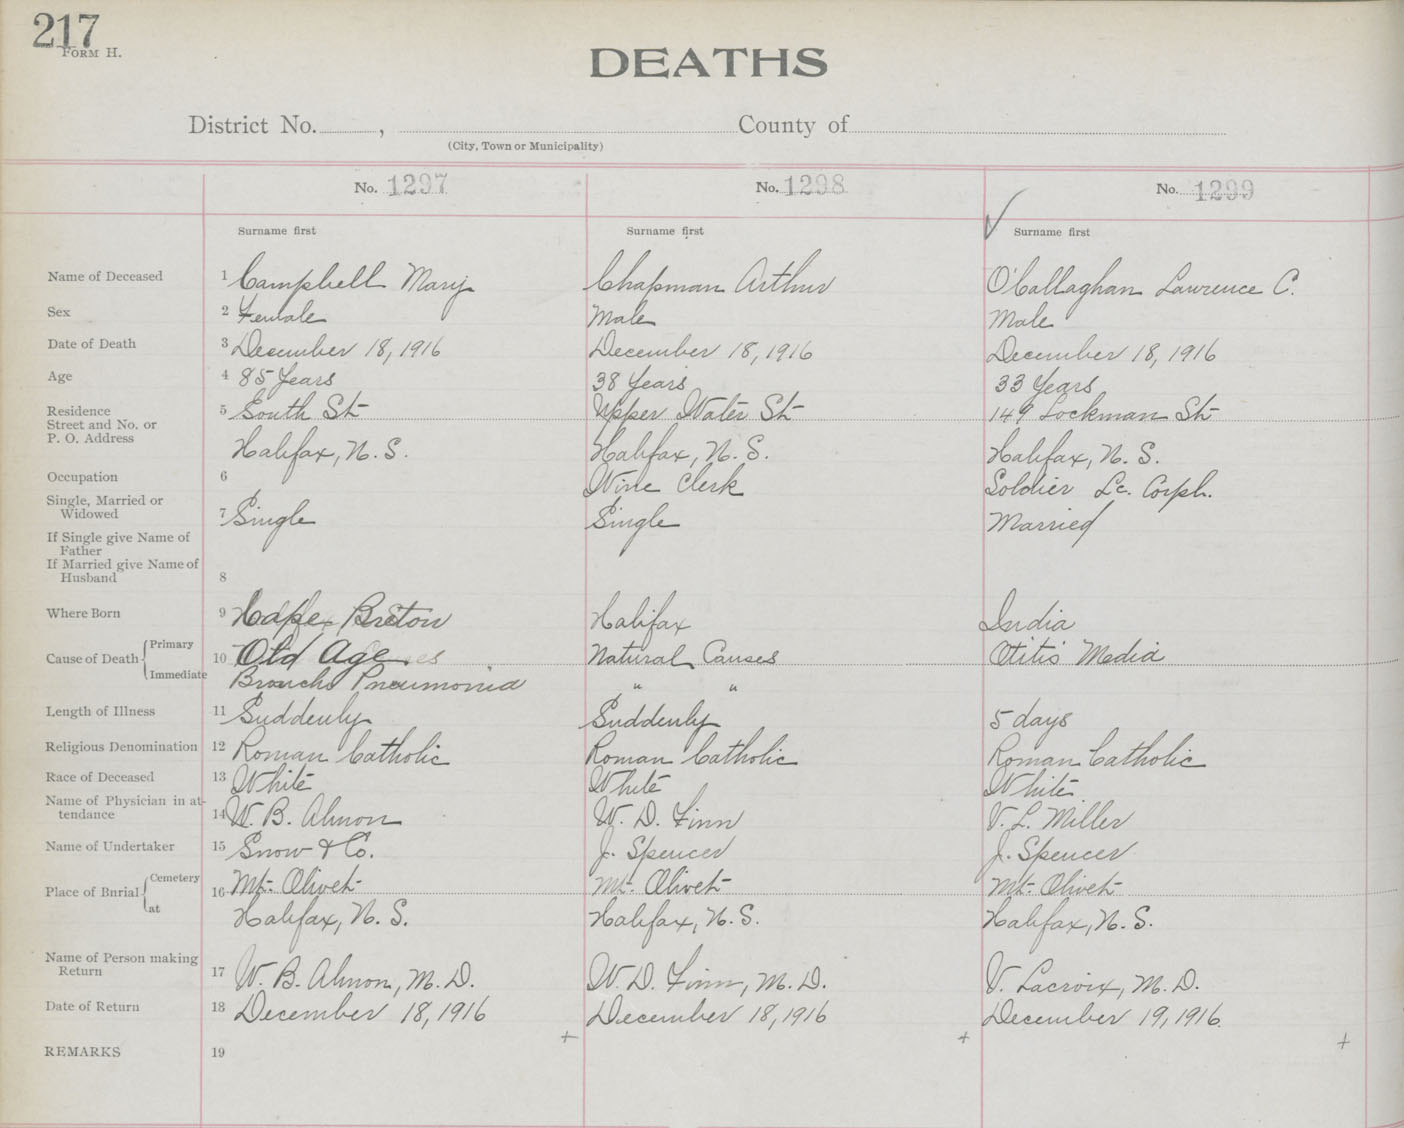 217
FORM H.
DEATHS
District No. , County of
(City, Town or Municipality)
No. 1297 No. 1298 No. 1299
Surname first Surname first Surname first
Name of Deceased 1 Campbell Mary Chapman Arthur O'Callaghan Lawrence C.
Sex 2 Female Male Male
Date of Death 3 December 18, 1916 December 18, 1916 December 18, 1916
Age 4 85 Years 38 Years 33 Years
Residence Street and No. or P. O. Address 5 South St Upper Water St 149 Lockman St
Halifax, N. S. Halifax, N. S. Halifax, N. S.
Occupation 6 Wine Clerk Soldier Lc. Corpl.
Single, Married or Widowed 7 Single Single Married
If Single give Name of Father
If Married give Name of Husband 8
Where Born 9 Cape Breton Halifax India
Cause of Death { Primary 10 Old Age Natural Causes Otitis Media
Immediate Broncho Pneumonia " "
Length of Illness 11 Suddenly Suddenly 5 days
Religious Denomination 12 Roman Catholic Roman Catholic Roman Catholic
Race of Deceased 13 White White White
Name of Physician in attendance 14 W. B. Almon W. D. Finn V. L. Miller
Name of Undertaker 15 Snow & Co. J. Spencer J. Spencer
Place of Burial { Cemetery 16 Mt. Olivet Mt. Olivet Mt. Olivet
at Halifax, N. S. Halifax, N. S. Halifax, N. S.
Name of Person making Return 17 W. B. Almon, M. D. W. D. Finn, M. D. V. Lacroix, M. D.
Date of Return 18 December 18, 1916 December 18, 1916 December 19, 1916.
+ + +
REMARKS 19